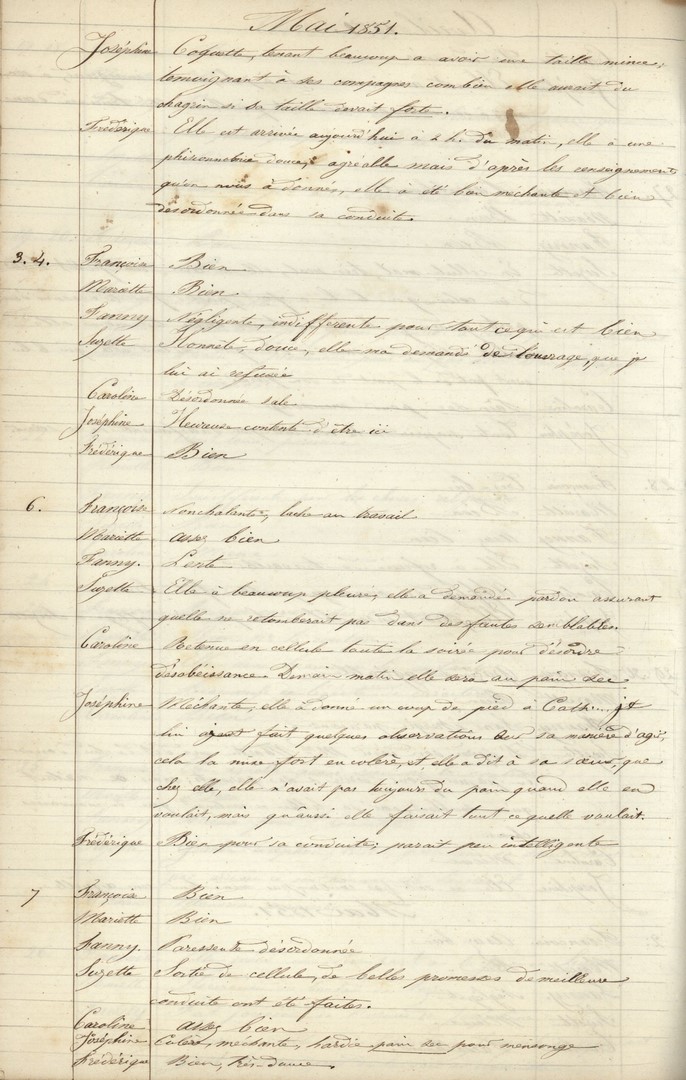 Mai 1851.
Joséphine Coquette, tenant beaucoup a avoir une taille mince,
temoignant à ses compagnes combien elle aurait du
chagrin si sa taille devait forte.
Frédérique Elle est arrivée aujourd'hui à 2 h. du matin, elle à une
phisionnomie douce, agréable mais d'après les renseignements
qu'on nous à donnés, elle à été bien méchante et bien
désordonnée dans sa conduite.
3. 4. Françoise Bien
Mariette Bien.
Fanny Négligente, indifferente pour tout ce qui est bien
Suzette Honnête, douce, elle ma demandé de l'ouvrage, que je
lui ai refusée
Caroline Désordonnée sale
Joséphine Heureuse contente d'être ici
Frédérique Bien
6. Françoise Nonchalante, lache au travail
Mariette assez bien
Fanny. Lente
Suzette Elle à beaucoup pleuré, elle a demandée pardon assurant
quelle ne retomberait pas dans des fautes semblables.
Caroline Retenue en cellule toute la soirée pour désordre
désobéissance. Demain matin elle sera au pain sec
Joséphine Méchante, elle à donné un coup de pied à Cath... je
lui ayant fait quelques observations sur sa manière d'agir,
cela la mise fort en colère, et elle a dit à sa sœur, que
chez elle, elle n'avait pas toujours du pain quand elle en
voulait, mais qu'aussi elle faisait tout ce quelle voulait.
Frédérique Bien pour sa conduite; parait peu intelligente
7 Françoise Bien
Mariette Bien
Fanny. Paresseuse désordonnée
Suzette Sortie de cellule, de belles promesses de meilleure
conduite ont été faites.
Caroline assez bien
Joséphine Colère, méchante, hardie, pain sec pour mensonge
Frédérique Bien, très douce.